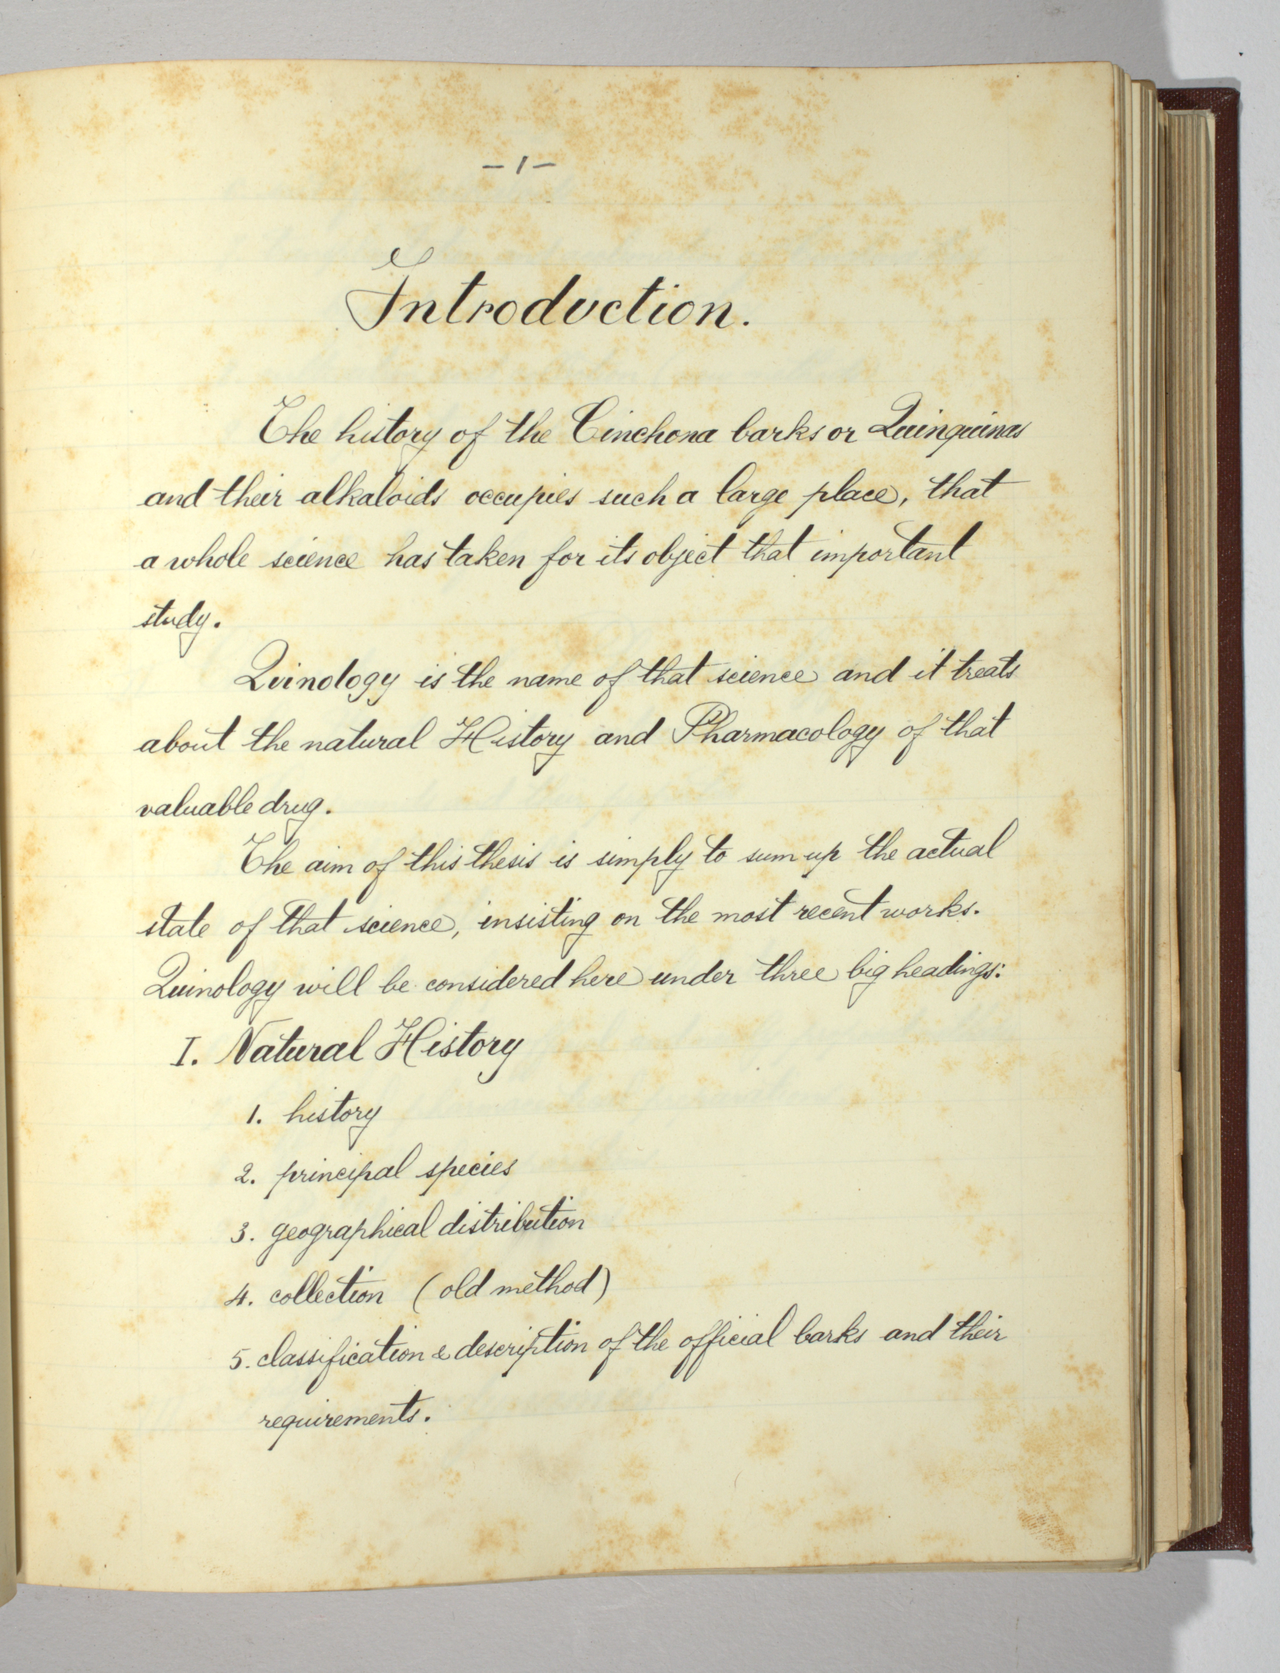 -1-
Introduction.
The history of the Cinchona barks or Quinquinas
and their alkaloids occupies such a large place, that
a whole science has taken for its object that important
study.
Quinology is the name of that science and it treats
about the natural History and Pharmacology of that
valuable drug.
The aim of this thesis is simply to sum up the actual
state of that science, insisting on the most recent works.
Quinology will be considered here under three big headings:
I. Natural History
1. history
2. principal species
3. geographical distribution
4. collection (old method)
5. classification & description of the official barks and their
requirements.